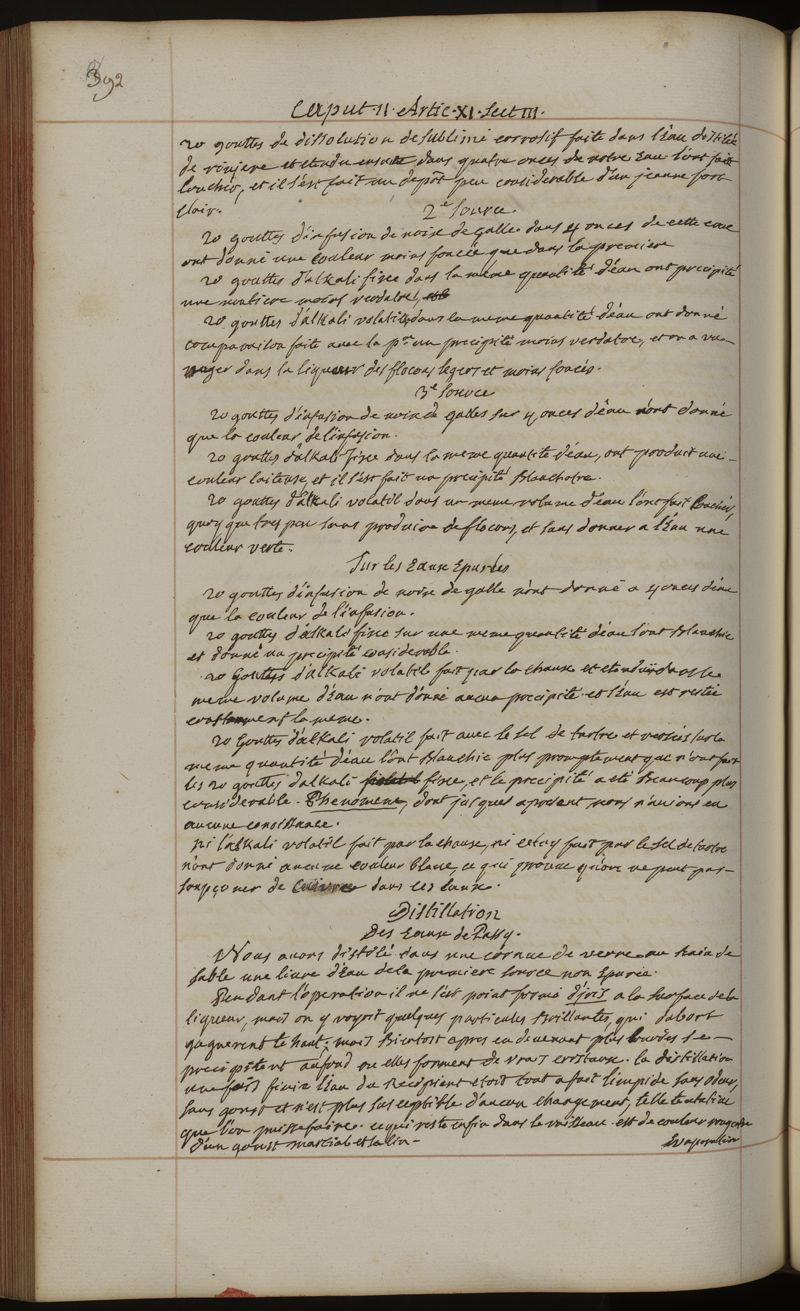 392
Caput · II · Artic · XI · Sect III ·
20 gouttes de dissolution de sublimé corrosif faite dans l'eau distilée
de riviere et etendu ensuite dans quatre onces de notre eau l'ont fait
louchir, et il s'est fait un depôt peu considerable d'un jeaune fort
clair.
2e source
20 gouttes d'infusion de noix de galle dans 4 onces de cette eau
ont donné une couleur moins foncée que dans la premiere
20 gouttes d'alkali fixe dans la même quantité d'eau ont precipité
une matiere moins verdatre,
20 gouttes d'alkali volatil dans la meme quantité d'eau ont donné
comparaison faite avec la pre un precipité moins verdatre, et on a vu na-
nager dans la liqueur des flocons legers et moins foncés.
3e source
20 gouttes d'infusion de noix de galles sur 4 onces d'eau n'ont donné
que la couleur de l'infusion.
20 gouttes d'alkali fixe dans la meme quantité d'eau, ont produit une
couleur laiteuse, et il s'est fait un precipité Blanchatre.
20 gouttes d'alkali volatil dans un meme volume d'eau l'ont fait louchir,
quoy que tres peu sans produire de flocons, et sans donner a l'eau une
couleur verte.
Sur les Eaux Epurées
20 gouttes d'infusion de noix de galle n'ont donné a 4 onces d'eau
que la couleur de l'infusion.
20 gouttes d'alkali fixe sur une meme quantité d'eau l'ont Blanchie
et donné un precipité considerable.
20 Gouttes d'alkali volatil fait par la chaux et etendu dans le
meme volume d'eau n'ont donné aucun precipité et l'eau est restée
constamment la meme.
20 Gouttes d'alkali volatil fait avec le sel de tartre et versées sur la
meme quantité d'eau l'ont Blanchie plus promptement que n'ont fait
les 20 gouttes d'alkali fixe, et le precipité a eté Beaucoup plus
considerable. Phenomene, dont jusques apresent nous n'avions eu
aucune connoissance.
Ni l'alkali volatil fait par la chaux, ni celuy fait par le sel de tartre
n'ont donné aucune couleur bleue, ce qui prouve qu'on ne peut pas
soupçoner de Cuivre dans ces eaux.
Distillation
Des eaux de Passy.
Nous avons distilé dans une cornue de verre au bain de
sable une livre d'eau de la premiere source non Epurée.
Pendant l'operation il ne s'est point formé d'iris a la surface de la
liqueur, mais on y voyoit quelques particules Brillantes, qui d'abort
gagnerent le haut, mais Bientost apres en devenant plus lourdes se
precipitent au fond ou elles forment de vrais cristaux. la distillation
une fois finie l'eau du Recipient etoit tout a fait limpide sans odeur,
sans goust et n'est plus susceptible d'aucun changement, telle tentative
que l'on puisse faire. ce qui reste enfin dans le vaisseau est de couleur rougeatre
d'un goust martial et salin -
Evaporation